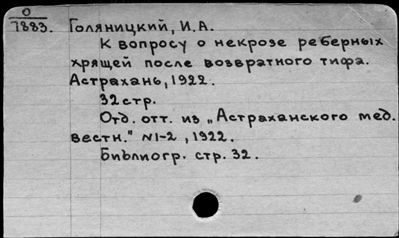 О
7883. Голяницкий, И.А.
К вопросу о некрозе реберных
хрящей после возвратного тифа.
Астрахань, 1922.
32 стр.
Отд. отт. из „Астраханского мед.
вестн." №1-2, 1922.
Библиогр. стр. 32.